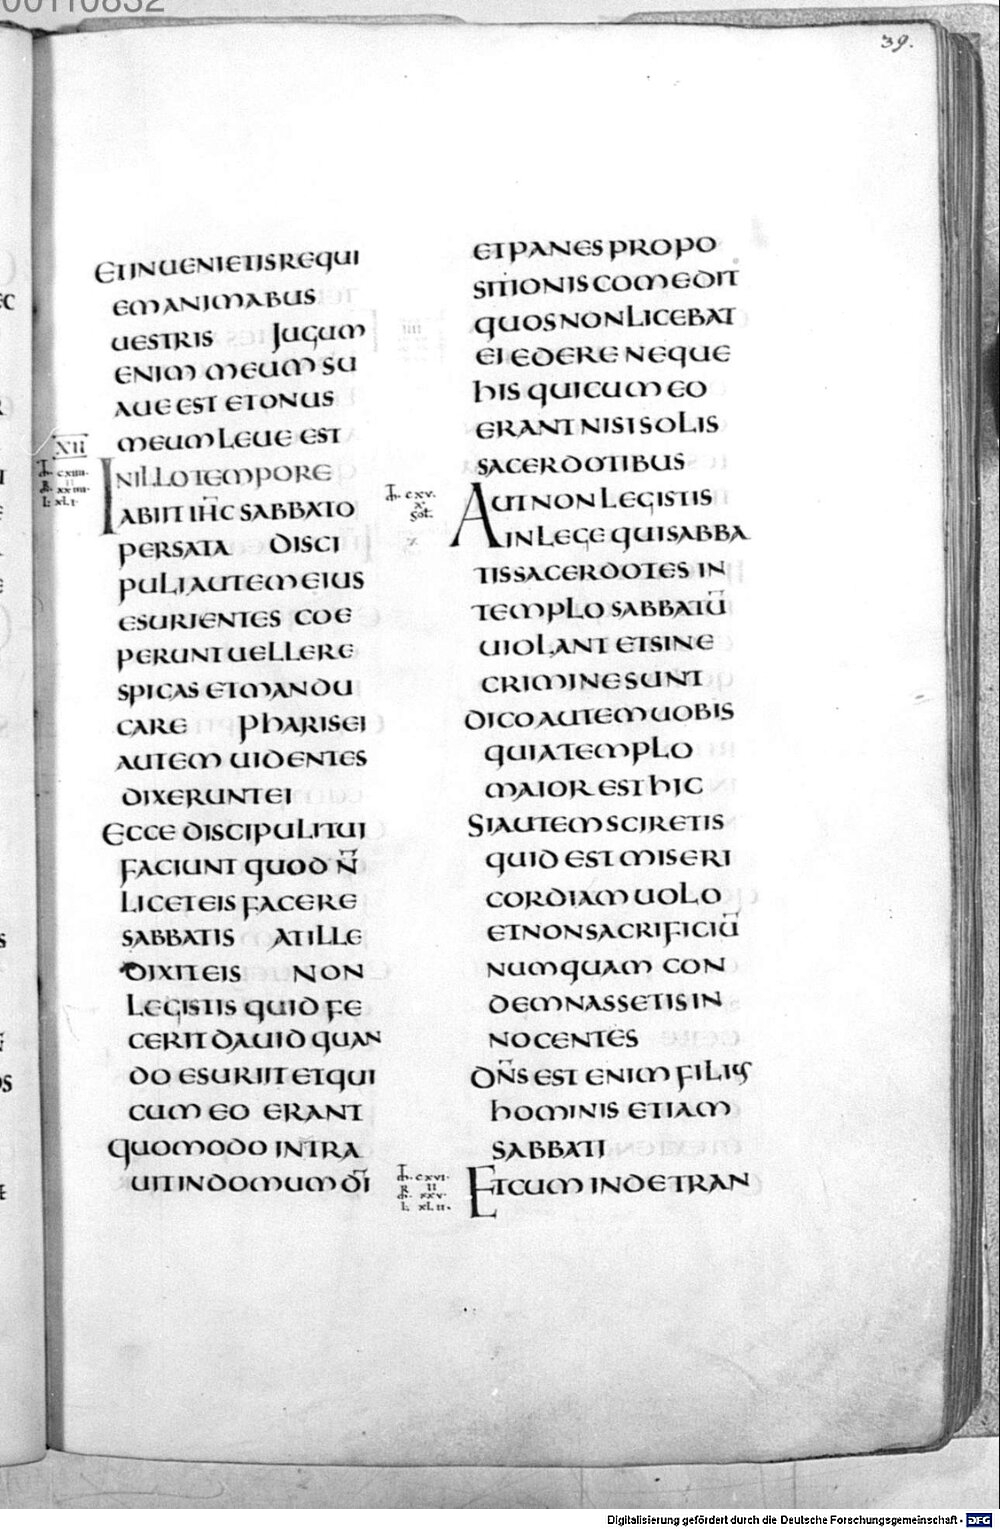 00110832
39.
ETINUENIETISREQUI
EMANIMABUS
UESTRIS JUGUM
ENIM MEUM SU
AUE EST ETONUS
MEUM LEUE EST
XII
INILLOTEMPORE
ABIIT IHC SABBATO
PERSATA DISCI
PULIAUTEM EIUS
ESURIENTES COE
PERUNT UELLERE
SPICAS ETMANDU
CARE PHARISEI
AUTEM UIDENTES
DIXERUNTEI
ECCE DISCIPULITUI
FACIUNT QUOD N̄
LICETEIS FACERE
SABBATIS ATILLE
DIXITEIS NON
LEGISTIS QUID FE
CERIT DAUID QUAN
DO ESURIIT ETQUI
CUM EO ERANT
QUOMODO INTRA
UITINDOMUM D̄I
ETPANES PROPO
SITIONIS COMEDIT
QUOSNONLICEBAT
EI EDERE NEQUE
HIS QUICUM EO
ERANT NISISOLIS
SACERDOTIBUS
cxv.
x.
sol.
AUTNON LEGISTIS
INLEGE QUISABBA
TISSACERDOTES IN
TEMPLO SABBATŪ
UIOLANT ETSINE
CRIMINESUNT
DICO AUTEM UOBIS
QUIATEMPLO
MAIOR EST HIC
SIAUTEM SCIRETIS
QUID EST MISERI
CORDIAM UOLO
ETNONSACRIFICIŪ
NUMQUAM CON
DEMNASSETIS IN
NOCENTES
DN̄S EST ENIM FILIUS
HOMINIS ETIAM
SABBATI
cxvi.
II
xxv.
L. xLII.
ETCUM INDETRAN
Digitalisierung gefördert durch die Deutsche Forschungsgemeinschaft - DFG